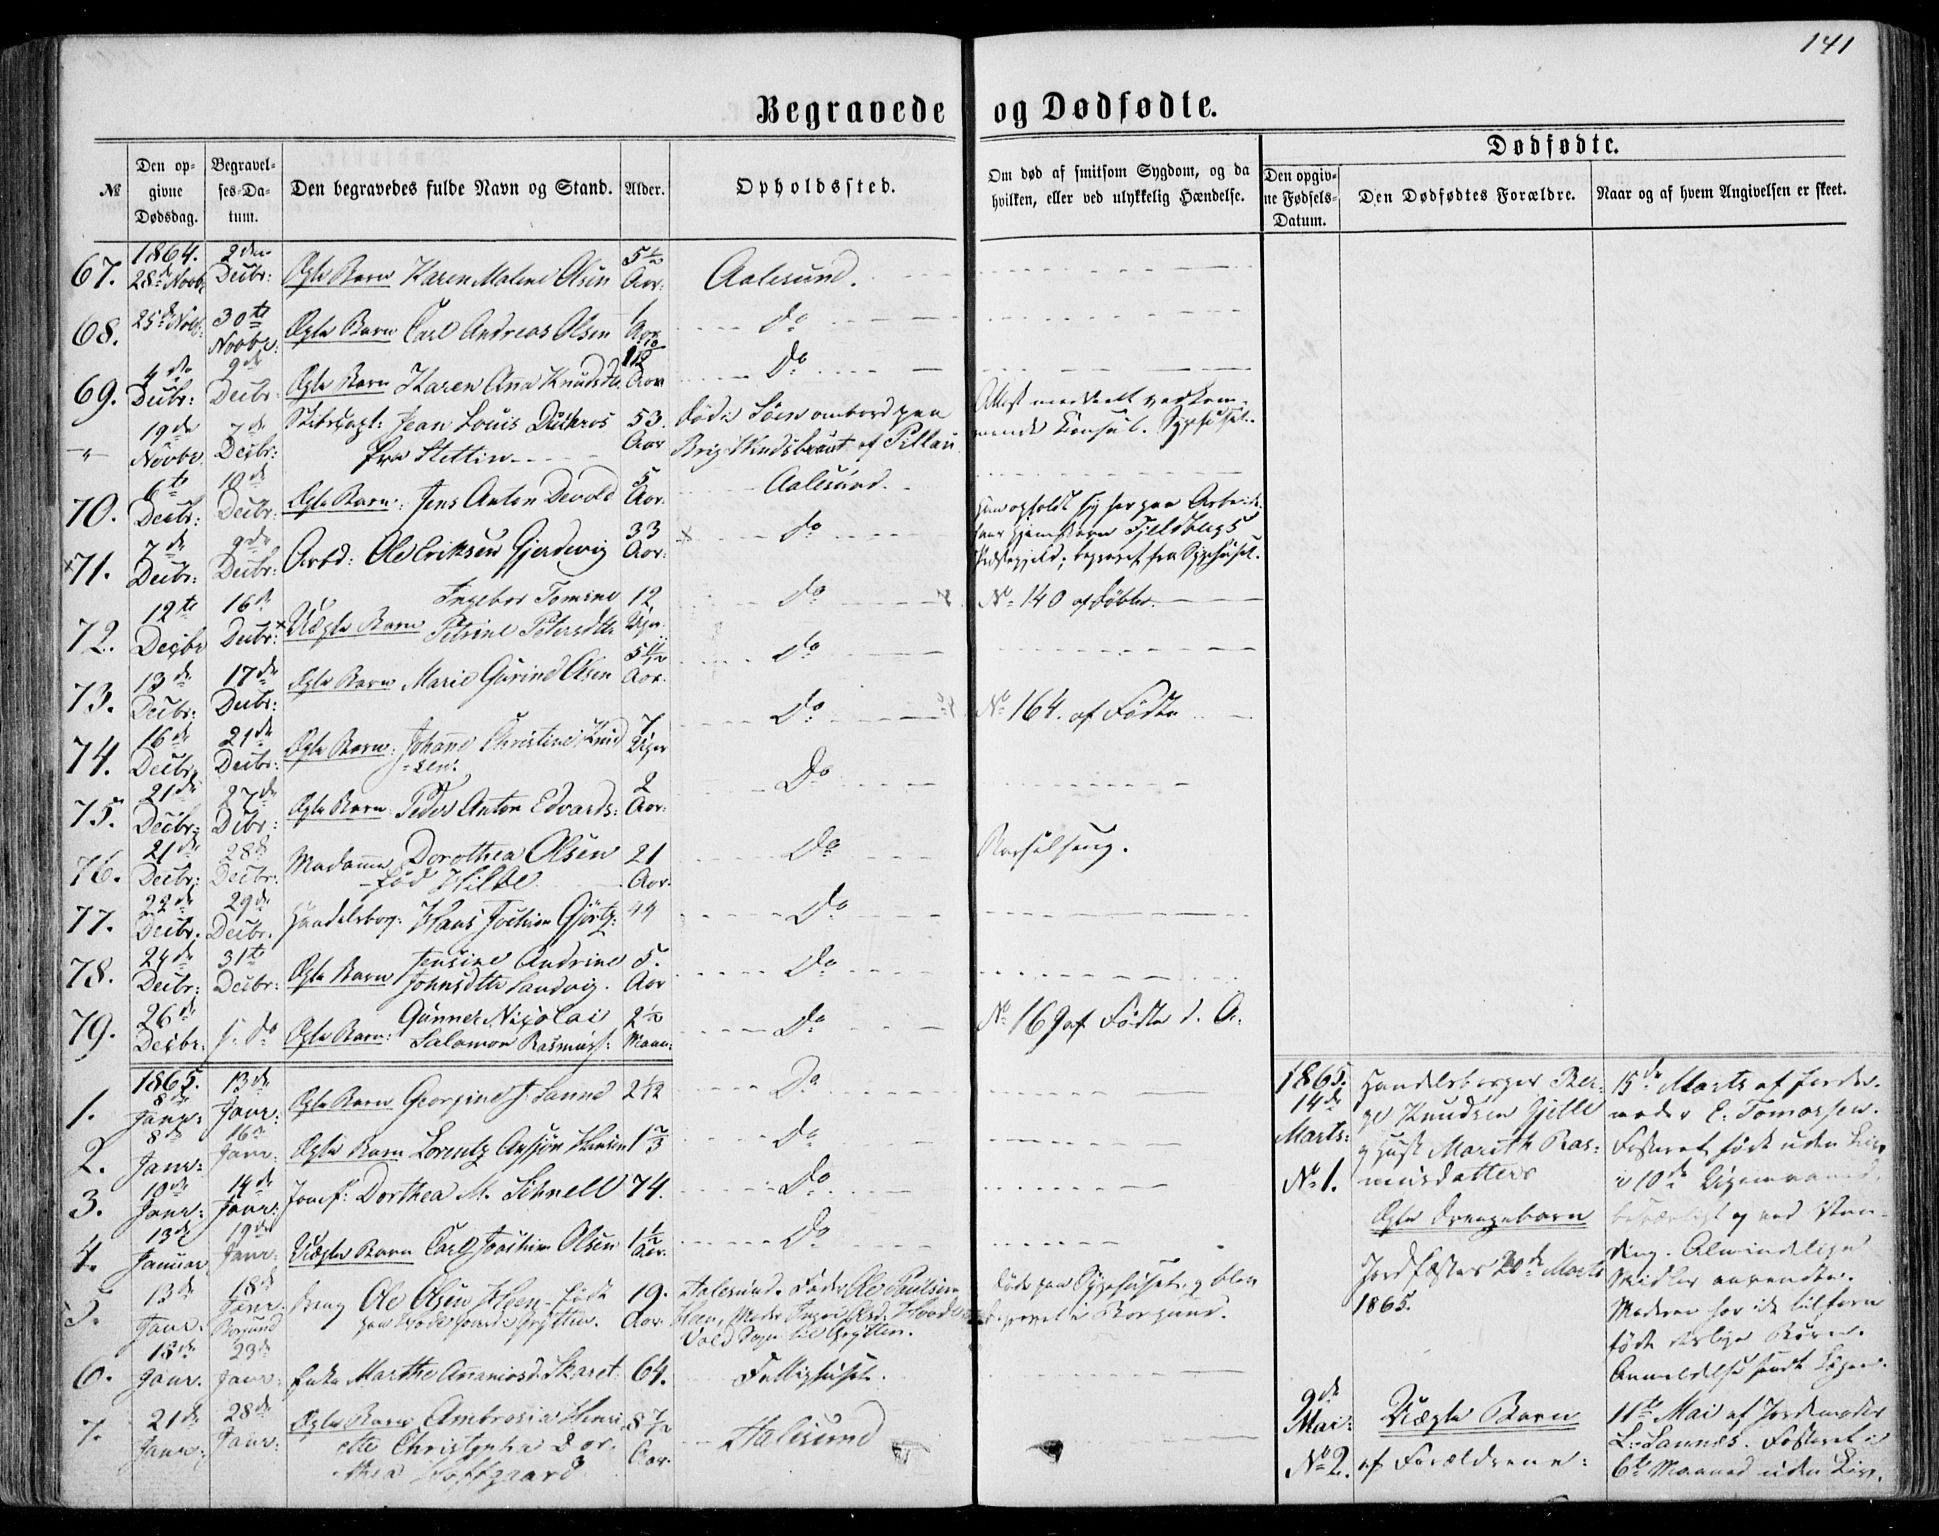 141
Begravede og Dødfødte.
№
Den opgivne Dødsdag.
Begravelses-Datum.
Den begravedes fulde Navn og Stand.
Alder.
Opholdssted.
Om død af smitsom Sygdom, og da hvilken, eller ved ulykkelig Hændelse.
Dødfødte.
Den opgivne Fødsels-Datum.
Den Dødfødtes Forældre.
Naar og af hvem Angivelsen er skeet.
67. 1864. 28de Novbr 2den Decbr: Ægte Barn Karen Maline Olsen 5½ Aar: Aalesund.
68. 25de Novbr: 30te Novbr: Ægte Barn Carl Andreas Olsen 1 Aar Do
69. 4de Decbr: 9de Decbr: Ægte Barn Karen Anna Knudsdtr. Aar Do
" 19de Novbr. 7de Decbr: Skibscapt: Jean Louis Dethros 53. Aar død i Søen ombord paa
fra Stettin Brig Windsbraut af Pillau
Attest meddeelt vedkommende Konsul. Sygehuset.
70. 6te Decbr: 10de Decbr: Ægte Barn: Jens Anton Devold 5 Aar. Aalesund.
71. 7de Decbr: 9de Decbr: Arbd: Ole Eriksen Gjerdevig 33 Aar: do
Han opholdt sig her paa Arbeide
Præstegjeld; begravet fra Sygehuset.
72. 12te Decbr 16de Decbr: Uægte Barn Ingebor Tomine Petrine Petersdtr 12 Uger Do No 140 af Døbte.
73. 13de Decbr: 17de Decbr: Ægte Barn Marie Gurine Olsen 5 Aar. Do
74. 16de Decbr. 21de Decbr: Ægte Barn: Johanne Christine Knudsen. 7 Uger Do No 164. af Fødte
75. 21de Decbr: 27de Dcbr: Ægte Barn Peder Anton Edvards: 2 Aar: Do
76. 21de Decbr: 28de Decbr: Madame Dorothea Olsen 21 Aar. Do Barselseng.
født Hilde
77. 22de Decbr. 29de Decbr. Handelsborg: Hans Jochim Gjörtz: 44 Do
78. 24de Decbr: 31te Decbr: Ægte Barn Jensine Andrine Johnsdtr Sandvig. 5. Aar Do
79. 26de Decbr: s. Do Ægte Barn: Gunner Nicolai Salamon Rasmuss: 2½ Maan: Do No 169 af Fødte d. A.
1. 1865. 8de Janr: 13de Janr: Ægte Barn Georgine J. Sanne 2½ Do
2. 8de Janr: 16de Janr Ægte Barn Lorentz Hansen Do
3. 10de Janr: 14de Janr: Jomf: Dorthea M. Schnell 74. Do
4. 13de Januar 19de Janr: Uægte Barn Carl Joachim Olsen 1½ Aar. Do
5. 13de Janr. 18de Janr. Borgund Dreng Ole Olsen Heen født 19. Aar Aalesund. Fader Ole Paulsen
Heen, Moder
Vold Sogn til Grytten.
døde paa Sygehuset, og blev begravet i Borgund.
6. 18de Janr. 23de Janr: Enke Marthe Ananiasd. Skaret. 64. Fattighuset.
7. 21de Janr: 28de Janr: Ægte Barn Ambrosia Henriette Christyna Dorthea Hoffgaard Aar. Aalesund
1865. 14de Marts: No 1.
Handelsborger Berge Knudsen Gjelle
og Hust. Marith Rasmusdatters
Ægte Drengebarn
Jordfæstes 20de Marts
1865.
15de Marts af Jordemoder E. Tomassen.
Fosteret født uden Liv
i 10de
og ved Vending. Almindelige
Midler anvendte.
Moderen har ik tilforn
født deslige Børn.
Anmeldelse sendt Lægen.
9de Mai: No 2.
Uægte Barn
af Forældrene:
11te Mai af Jordemoder
L. Sannes. Fosteret i
6te Maaned uden Liv.